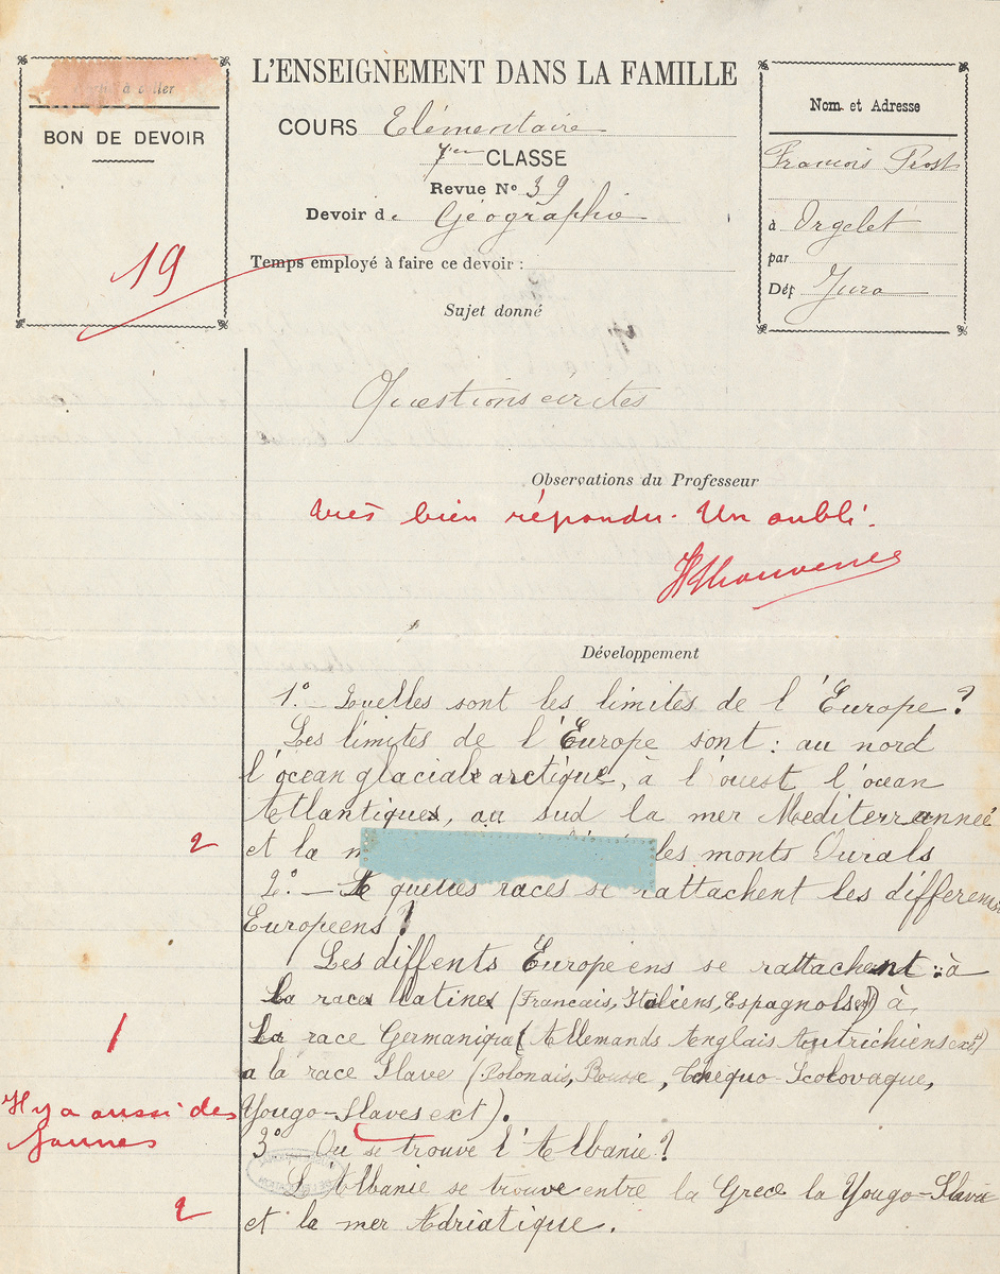 à coller
BON DE DEVOIR
19
L'ENSEIGNEMENT DANS LA FAMILLE
COURS Elémentaire
7me CLASSE
Revue No 39
Devoir de Géographie
Temps employé à faire ce devoir :
Sujet donné
Nom et Adresse
François Prost
à Orgelet
par
Dép Jura
Questions écrites
Observations du Professeur
très bien répondu. Un oubli.
Développement
1o. — Quelles sont les limites de l'Europe ?
Les limites de l'Europe sont : au nord
l'océan glaciale arctique, à l'ouest l'océan
Atlantique, au sud la mer Mediterrannée
2
et la les monts Ourals
2o. — A quelles races se rattachent les differents
Européens ?
Les diffents Européens se rattachent : à
la race latines (Francais, Italiens, Espagnols) à
1
la race Germanique (Allemands Anglais Autrichiens ext)
a la race Slave (Polonais, Rousse, Tchequo-Scolovaque,
Il y a aussi des
Jaunes
Yougo-Slaves ext).
3o — Ou se trouve l'Albanie ?
L'Albanie se trouve entre la Grece la Yougo-Slavie
2
et la mer Adriatique.